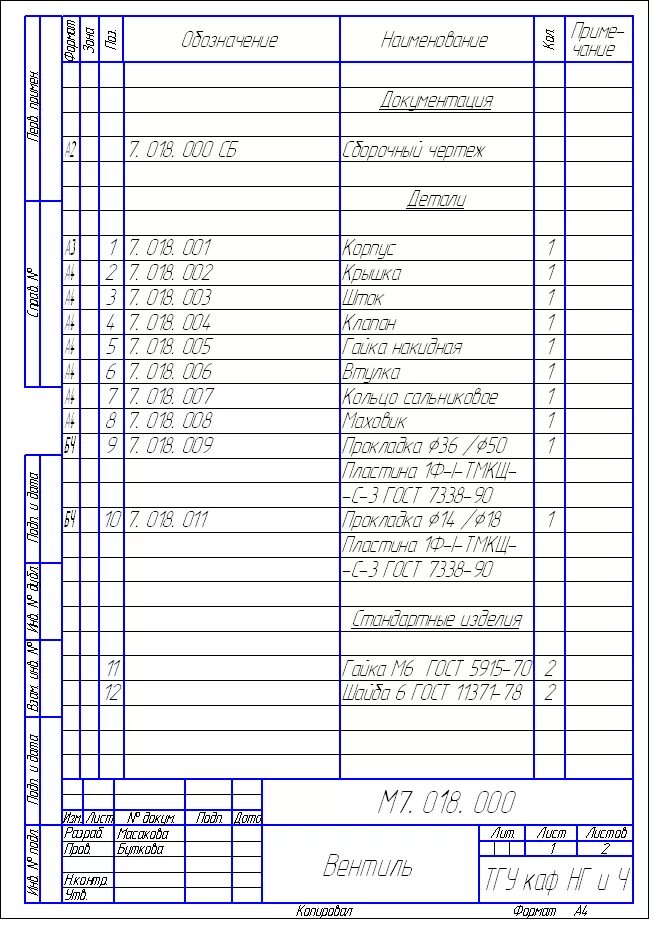 Формат Зона Поз. Обозначение Наименование Кол. Приме-
чание
Перв. примен.
Документация
А2 7. 018. 000 СБ Сборочный чертеж
Детали
Справ. №
А3 1 7. 018. 001 Корпус 1
А4 2 7. 018. 002 Крышка 1
А4 3 7. 018. 003 Шток 1
А4 4 7. 018. 004 Клапан 1
А4 5 7. 018. 005 Гайка накидная 1
А4 6 7. 018. 006 Втулка 1
А4 7 7. 018. 007 Кольцо сальниковое 1
А4 8 7. 018. 008 Маховик 1
БЧ 9 7. 018. 009 Прокладка ф36 /ф50 1
Пластина 1Ф-I-ТМКЩ-
-С-3 ГОСТ 7338-90
БЧ 10 7. 018. 011 Прокладка ф14 /ф18 1
Пластина 1Ф-I-ТМКЩ-
-С-3 ГОСТ 7338-90
Подп. и дата
Инв. № дубл.
Стандартные изделия
Взам. инв. №
11 Гайка М6 ГОСТ 5915-70 2
12 Шайба 6 ГОСТ 11371-78 2
Подп. и дата
М7. 018. 000
Изм. Лист № докум. Подп. Дата
Инв. № подл.
Разраб. Масакова
Пров. Буткова
Н.контр.
Утв.
Вентиль
Лит. Лист Листов
1 2
ТГУ каф НГ и Ч
Копировал Формат А4